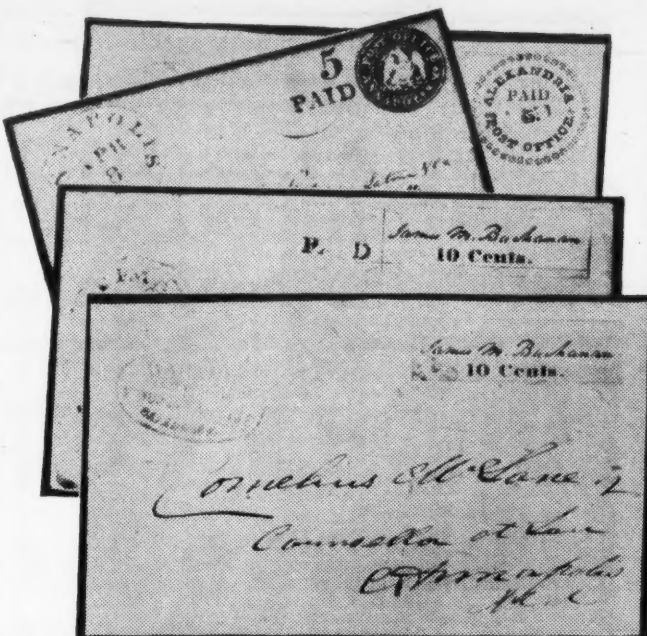 5
PAID
POST OFFICE
ALEXANDRIA
PAID
5
POST OFFICE
NAPOLIS
APR
8
P D
James M. Buchanan
10 Cents.
James M. Buchanan
10 Cents.
Cornelius McLane
Counsellor at Law
Annapolis
Md